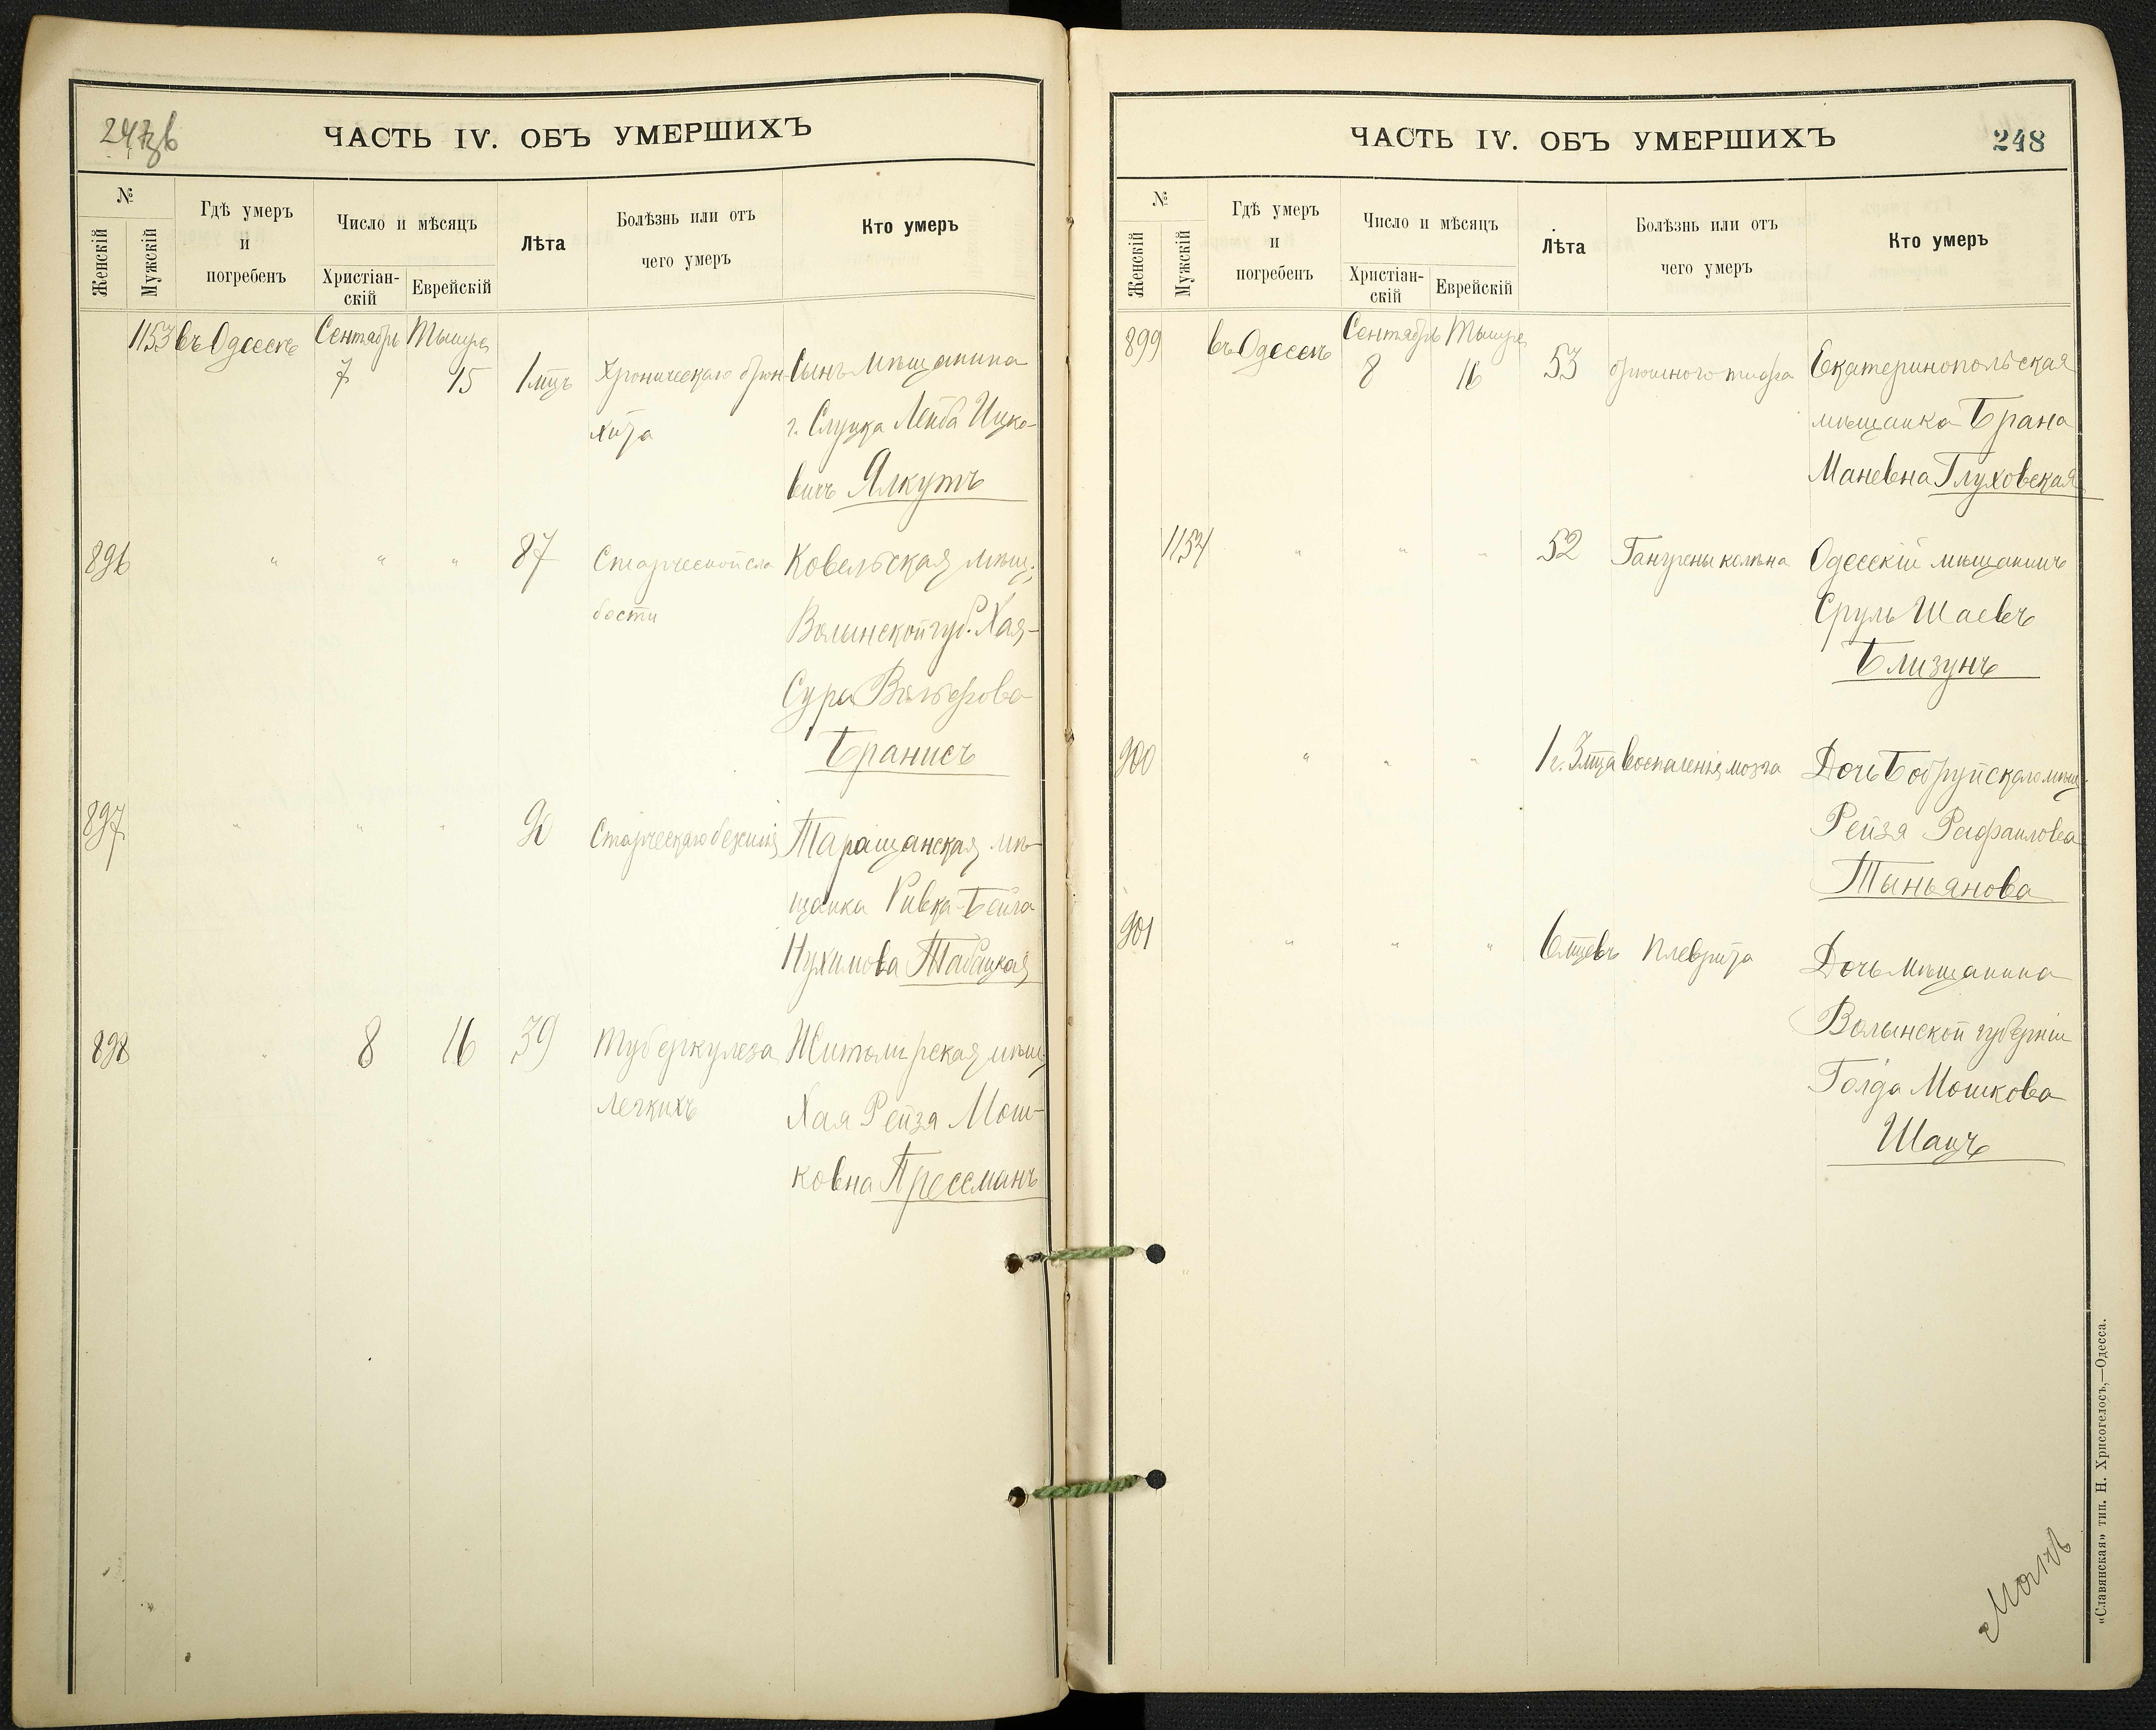 247об
ЧАСТЬ IV. ОБЪ УМЕРШИХЪ
№
Женскій
Мужскій
Гдѣ умеръ
и
погребенъ
Число и мѣсяцъ
Христіан-
скій
Еврейскій
Лѣта
Болѣзнь или отъ
чего умеръ
Кто умеръ
1153 въ Одессѣ Сентябрь Тышре
7 15 1 мцъ Хроническаго брон- Сынъ мѣщанина
хита г. Слуцка Лейба Ицко-
вичъ Ялкутъ
896 " " " 87 Старческой сла Ковельская мѣщ.
бости Волынской губ. Хая-
Сура Вольфова
Бранисъ
897 " " " 90 Старческаго безсилія Таращанская мѣ-
щанка Ривка-Бейла
Нухимова Табацкая
898 " 8 16 39 Туберкулеза Житомірская мѣщ.
легкихъ Хая Рейза Мош-
ковна Прессманъ
ЧАСТЬ IV. ОБЪ УМЕРШИХЪ
248
№
Женскій
Мужскій
Гдѣ умеръ
и
погребенъ
Число и мѣсяцъ
Христіан-
скій
Еврейскій
Лѣта
Болѣзнь или отъ
чего умеръ
Кто умеръ
899 въ Одессѣ Сентябрь Тышре
8 16 53 брюшного тифа Екатеринопольская
мѣщанка Брана
Маневна Глуховская
1154 " " " 52 Гангрены колѣна Одесскій мѣщанинъ
Сруль Шаевъ
Близунъ
900 " " " 1 г. 3 мца Воспаленія мозга Дочь Бобруйскаго мѣщ.
Рейзя Рафаиловна
Тыньянова
901 " " " 6 мцевъ Плеврита Дочь мѣщанина
Волынской губерніи
Голда Мошкова
Шацъ
«Славянская» тип. Н. Хрисогелосъ,—Одесса.